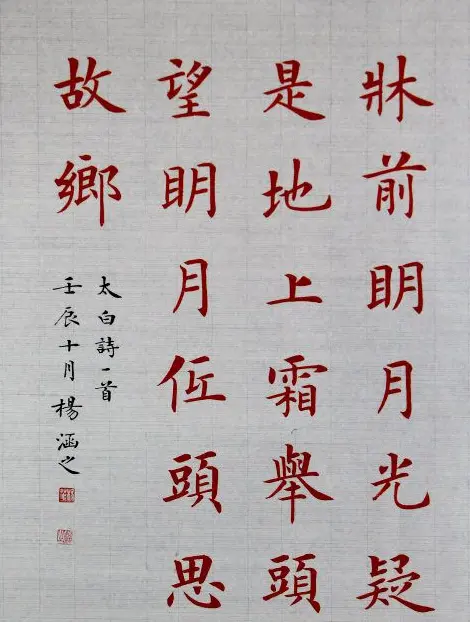 牀前眀月光疑
是地上霜舉頭
望眀月低頭思
故鄉
太白詩一首
壬辰十月楊涵之